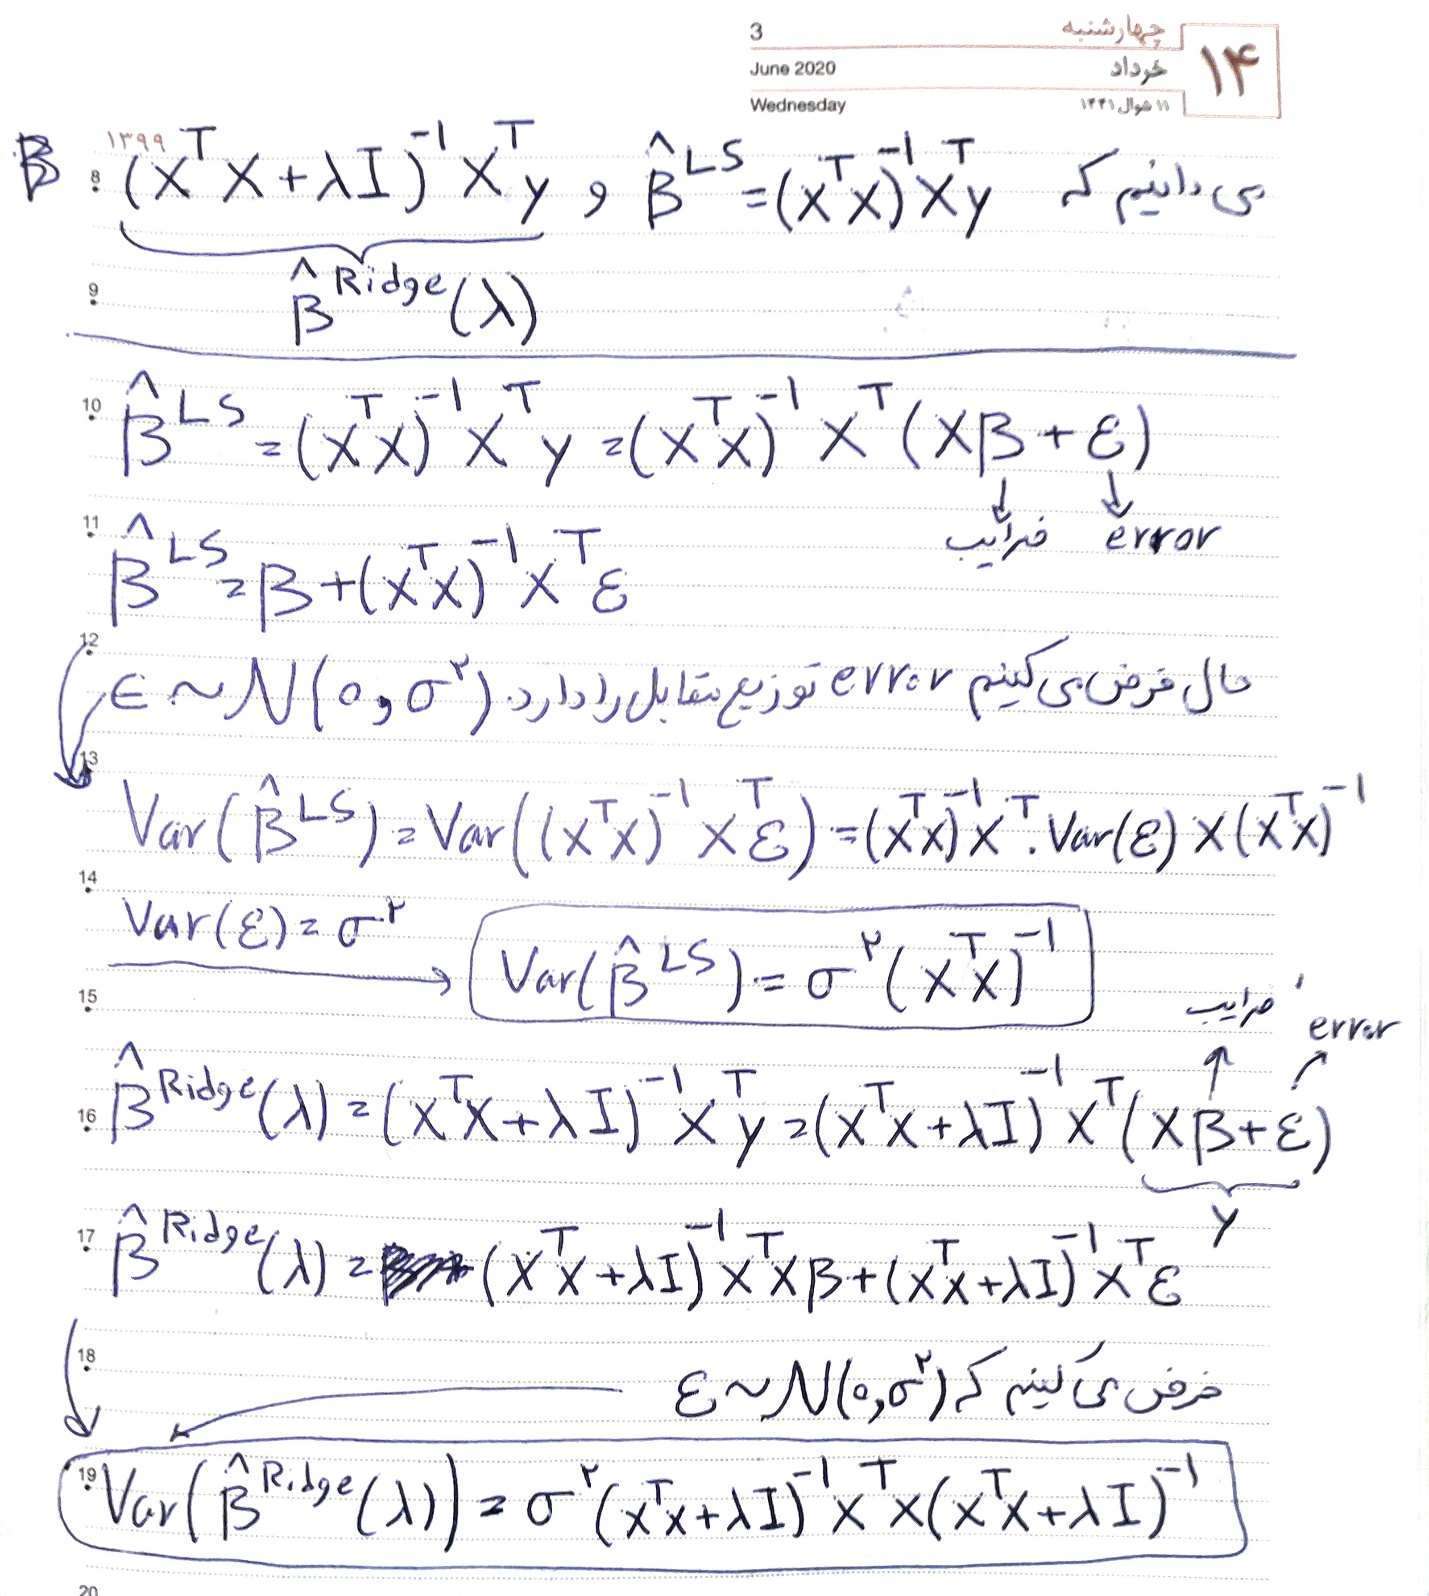 3 چهارشنبه
June 2020 خرداد ۱۴
Wednesday ۱۱ شوال ۱۴۴۱
۱۳۹۹
B 8 می دانیم که β̂^LS = (X^T X)^-1 X^T y و (X^T X + λI)^-1 X^T y
9 β̂^Ridge (λ)
10 β̂^LS = (X^T X)^-1 X^T y = (X^T X)^-1 X^T (Xβ + ε)
ضرایب error
11 β̂^LS = β + (X^T X)^-1 X^T ε
12 حال فرض می کنیم error توزیع مقابل را دارد. ε ~ N(0, σ^۲)
13 Var(β̂^LS) = Var((X^T X)^-1 X^T ε) = (X^T X)^-1 X^T . Var(ε) X (X^T X)^-1
14 Var(ε) = σ^۲
Var(β̂^LS) = σ^۲ (X^T X)^-1
15 ضرایب error
16 β̂^Ridge (λ) = (X^T X + λI)^-1 X^T y = (X^T X + λI)^-1 X^T (Xβ + ε)
y
17 β̂^Ridge (λ) = (X^T X + λI)^-1 X^T X β + (X^T X + λI)^-1 X^T ε
18 فرض می کنیم که ε ~ N(0, σ^۲)
19 Var(β̂^Ridge (λ)) = σ^۲ (X^T X + λI)^-1 X^T X (X^T X + λI)^-1
20